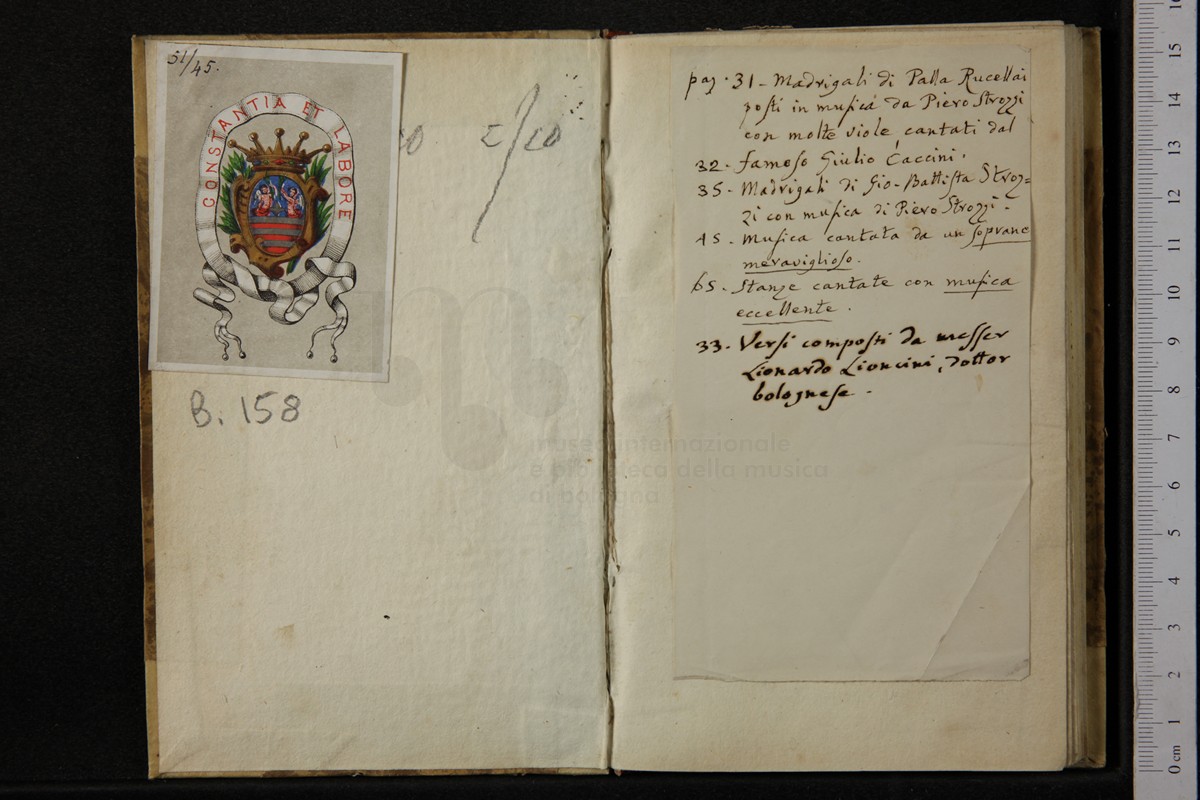 51/45.
CONSTANTIA ET LABORE
B. 158
pag. 31 - Madrigali di Palla Rucellai
posti in musica da Piero Strozzi
con molte viole cantati dal
32. famoso Giulio Caccini.
35. Madrigali di Gio. Battista Stroz=
zi con musica di Piero Strozzi.
45. Musica cantata da un soprano
meraviglioso.
65. Stanze cantate con musica
eccellente.
33. Versi composti da messer
Lionardo Lioncini, dottor
bolognese.
museo internazionale
e biblioteca della musica
di bologna
0 cm 1 2 3 4 5 6 7 8 9 10 11 12 13 14 15 16